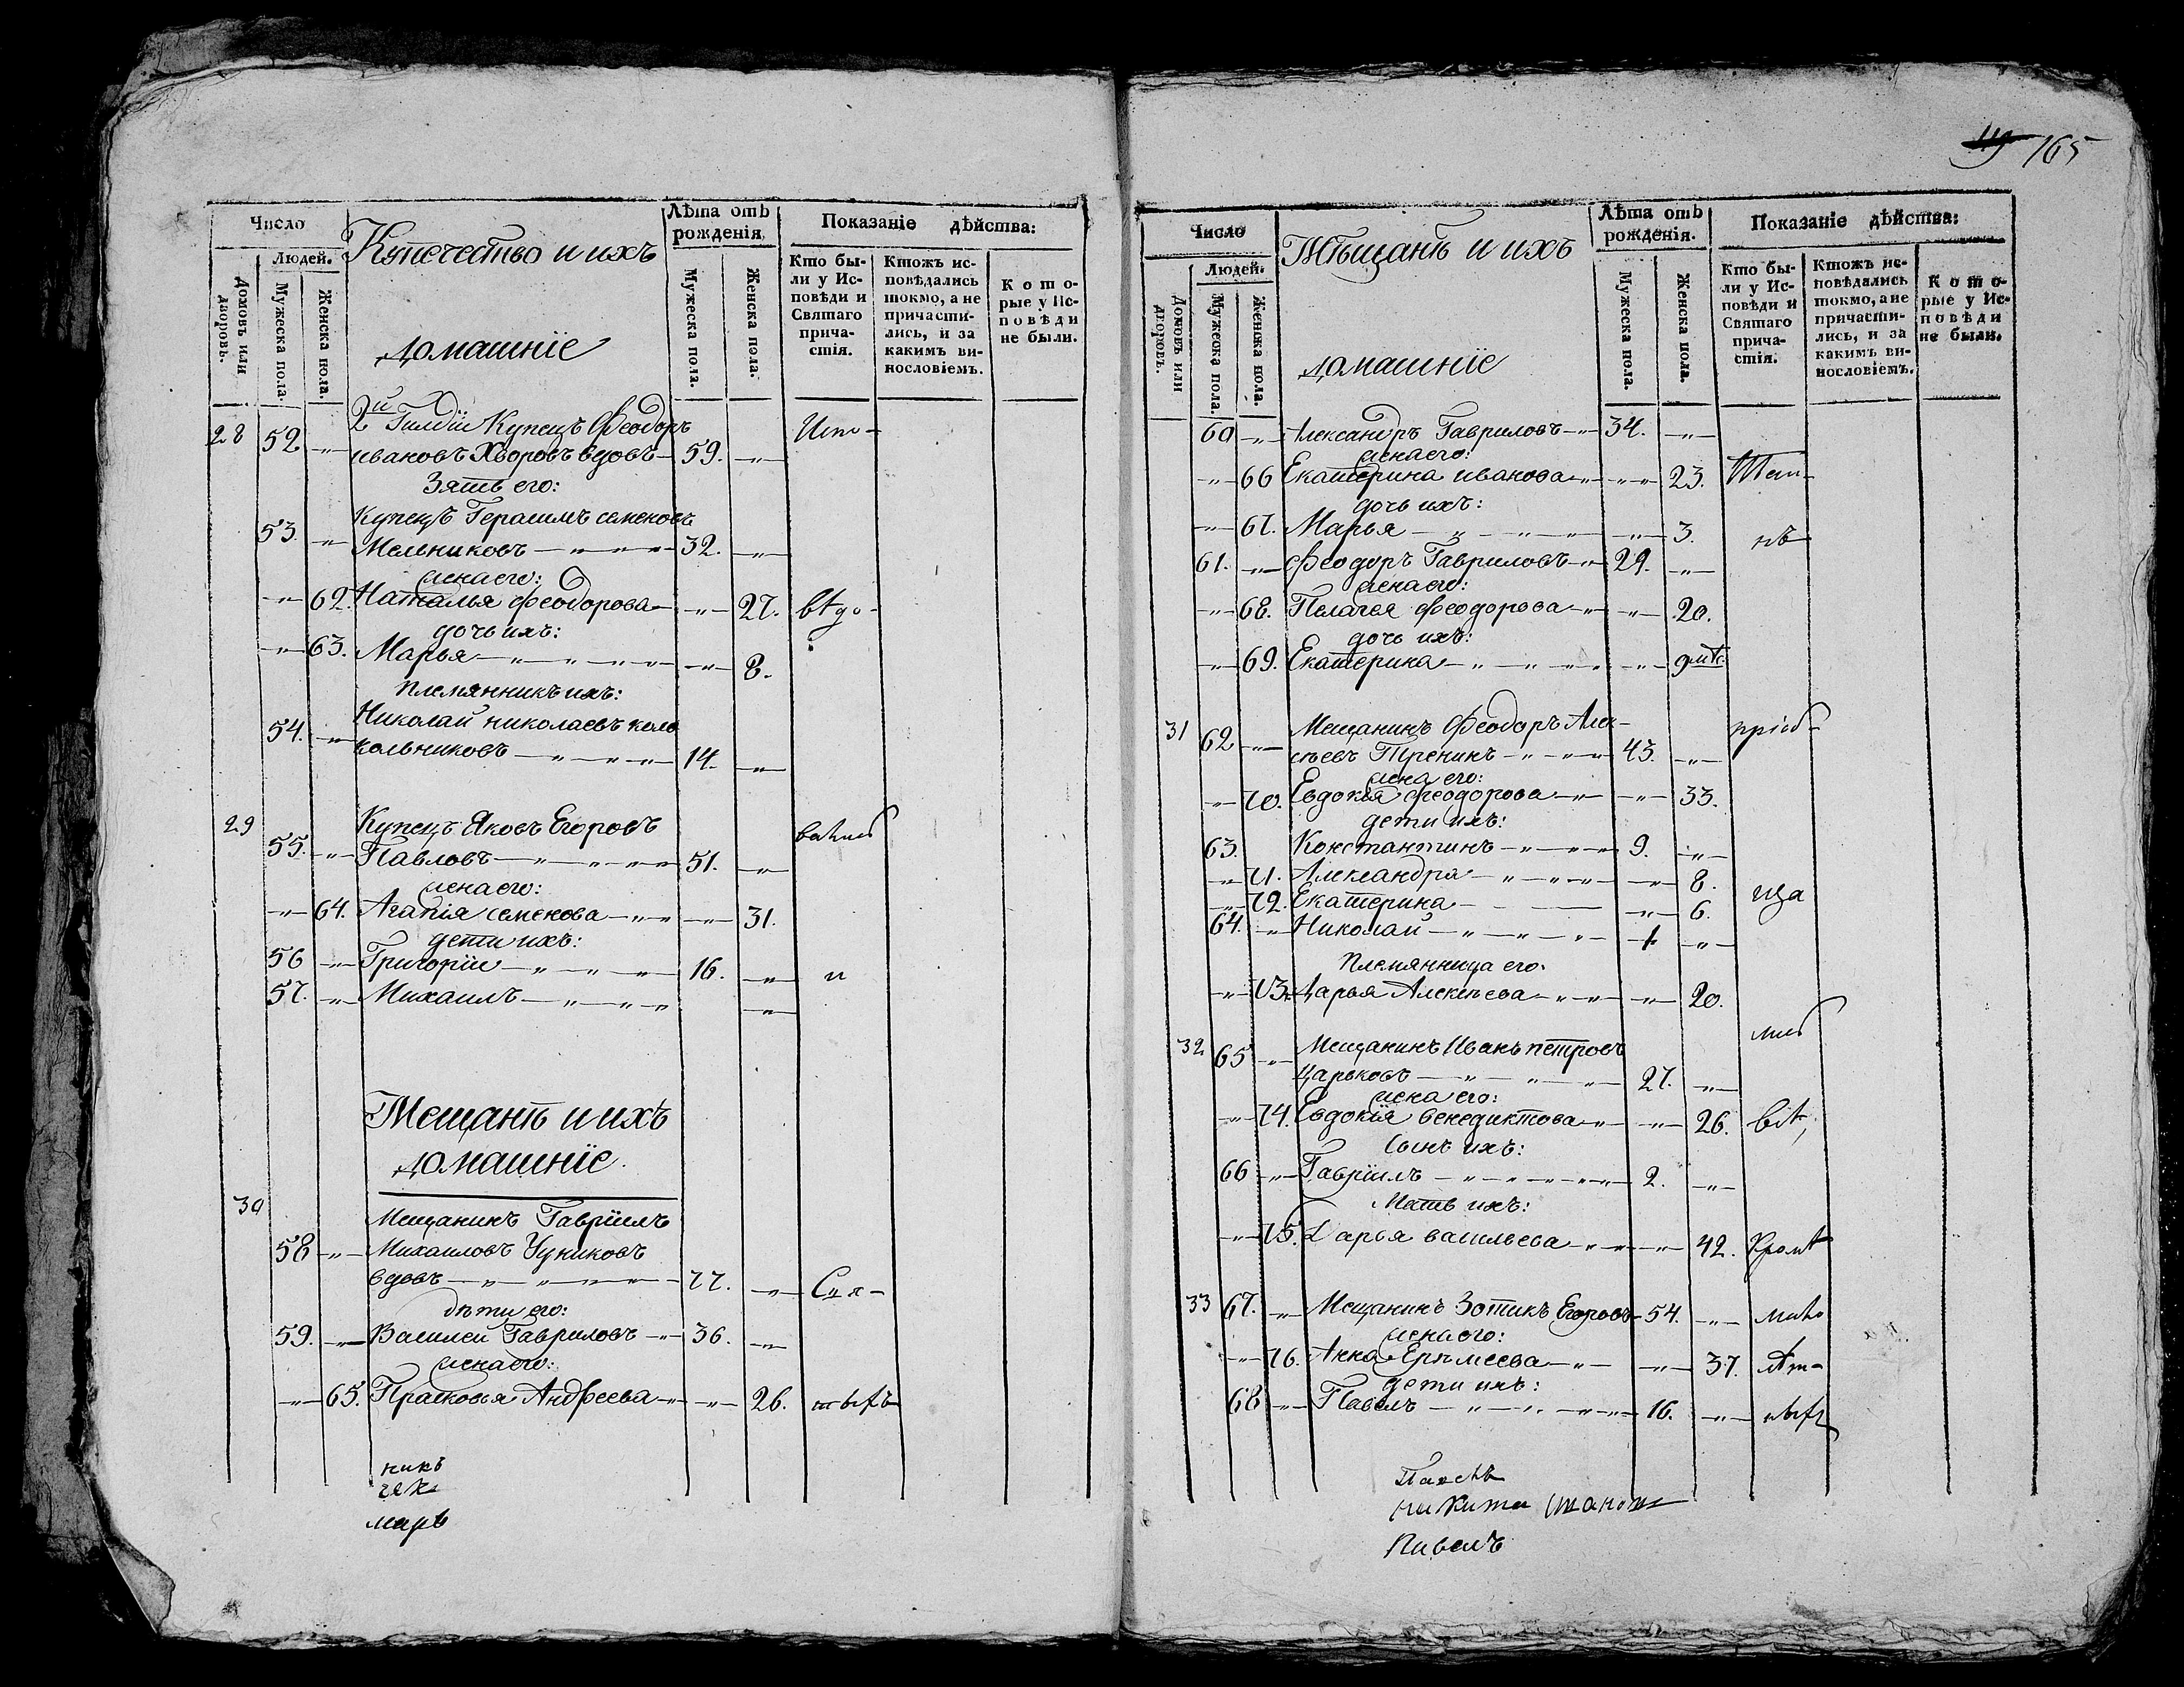 Число
Купечество и ихъ
домашніе
Лѣта отъ рожденія.
Показаніе дѣйства:
Людей.
Домовъ или дворовъ.
Мужеска пола.
Женска пола.
Мужеска пола.
Женска пола.
Кто были у Исповѣди и Святаго причастія.
Ктожъ исповѣдались токмо, а не причастились, и за какимъ винословіемъ.
Которые у Исповѣди не были.
28 52 2й Гилдїи Купецъ Феодоръ
ивановъ Хворовъ вдовъ 59. Испо-
Зять его:
Купецъ Герасимъ семеновъ
53. Мельниковъ 32.
жена его:
62. Наталья Феодорова 27. вѣдо-
дочь ихъ:
63. Марья 8.
племянникъ ихъ:
Николай николаевъ коло
54. кольниковъ 14.
29 Купецъ Яковъ Егоровъ
55. Павловъ 51.
жена его:
64. Агапія семенова 31.
дети ихъ:
56 Григорїи 16. и
57. Михаилъ
Мещанѣ и ихъ
домашніе
30 Мещанинъ Гаврїилъ
58 Михаиловъ
вдовъ 77.
дѣти его:
59. Василеи Гавриловъ 36.
жена его:
65. Прасковья Андреева 26.
марь
165
Число
Мѣщанѣ и ихъ
домашніе
Лѣта отъ рожденія.
Показаніе дѣйства:
Людей.
Домовъ или дворовъ.
Мужеска пола.
Женска пола.
Мужеска пола.
Женска пола.
Кто были у Исповѣди и Святаго причастія.
Ктожъ исповѣдались токмо, а не причастились, и за какимъ винословіемъ.
Которые у Исповѣди не были.
60 Александръ Гавриловъ 34.
жена его:
66 Екатерина иванова 23.
дочь ихъ:
67. Марья 3.
61. Феодоръ Гавриловъ 29.
жена его:
68. Пелагея Феодорова 20.
дочь ихъ:
69. Екатерина 9 мѣс
31 Мещанинъ Феодоръ Алек-
62 сѣевъ Тренинъ 43.
жена его:
70. Евдокія Феодорова 33.
дети ихъ:
63. Константинъ 9.
71. Александра 8.
72. Екатерина 6. ща
64. Николай 1.
племянница его.
73. Дарья Алексѣева 20.
32 65 Мещанинъ Иванъ петровъ
Царьковъ 27.
жена его:
74. Евдокїя венедиктова 26. всѣ,
сынъ ихъ:
66 Гаврїилъ 2.
Мать ихъ:
75. Дарья васильева 42. Кромѣ
33 67. Мещанинъ Зотикъ Егоровъ 54. мало
жена его:
76. Анна Ерѣмеева 37. лѣт-
дети ихъ:
68 Павелъ 16. ныхъ
никита
Павелъ